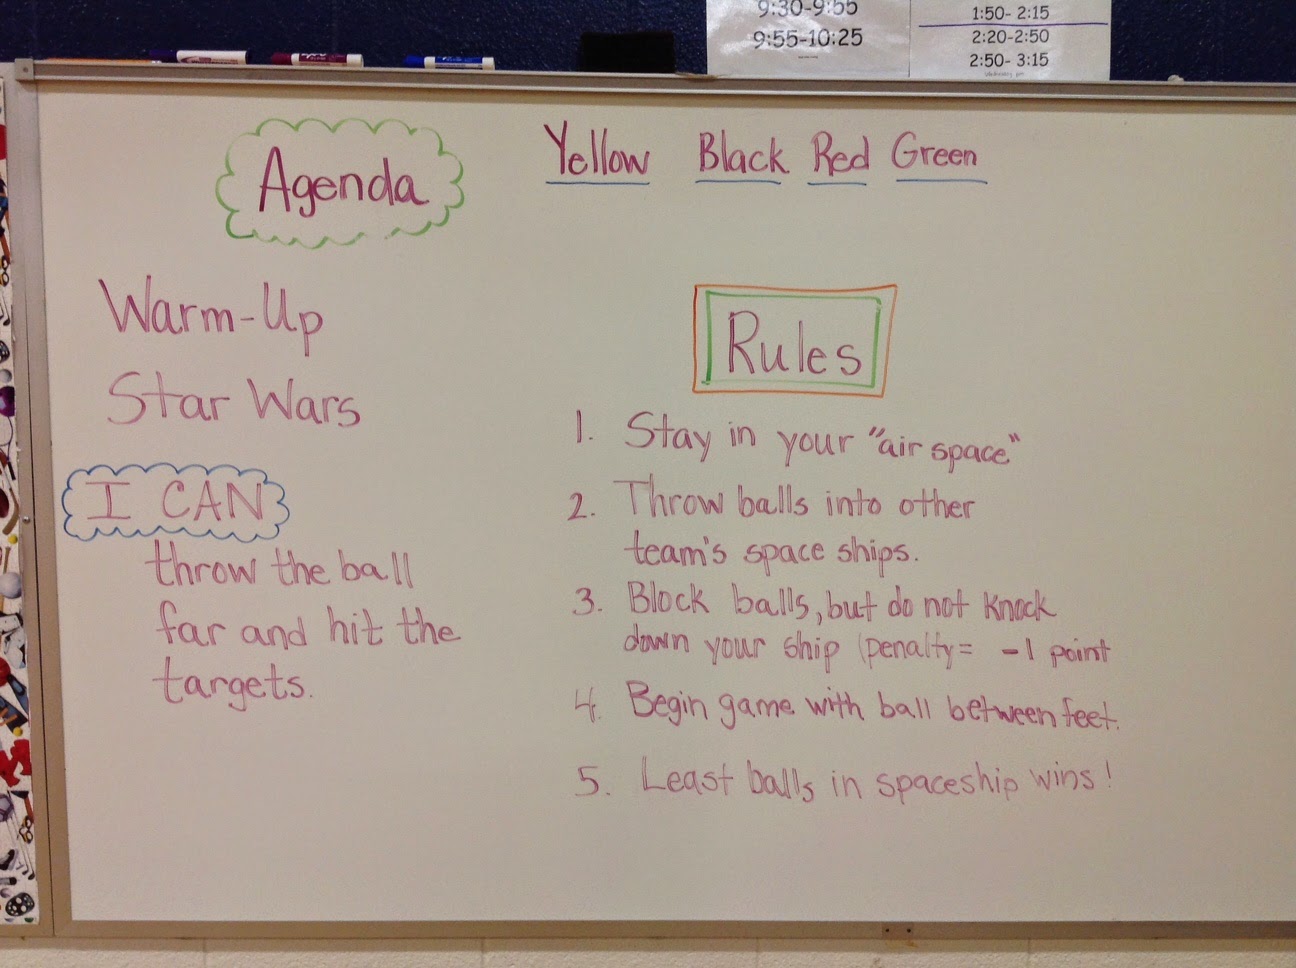 9:30-9:55
9:55-10:25
1:50- 2:15
2:20-2:50
2:50- 3:15
Agenda
Warm-Up
Star Wars
I CAN
throw the ball
far and hit the
targets.
Yellow Black Red Green
Rules
1. Stay in your "air space"
2. Throw balls into other
team's space ships.
3. Block balls, but do not knock
down your ship (penalty= -1 point
4. Begin game with ball between feet.
5. Least balls in spaceship wins!